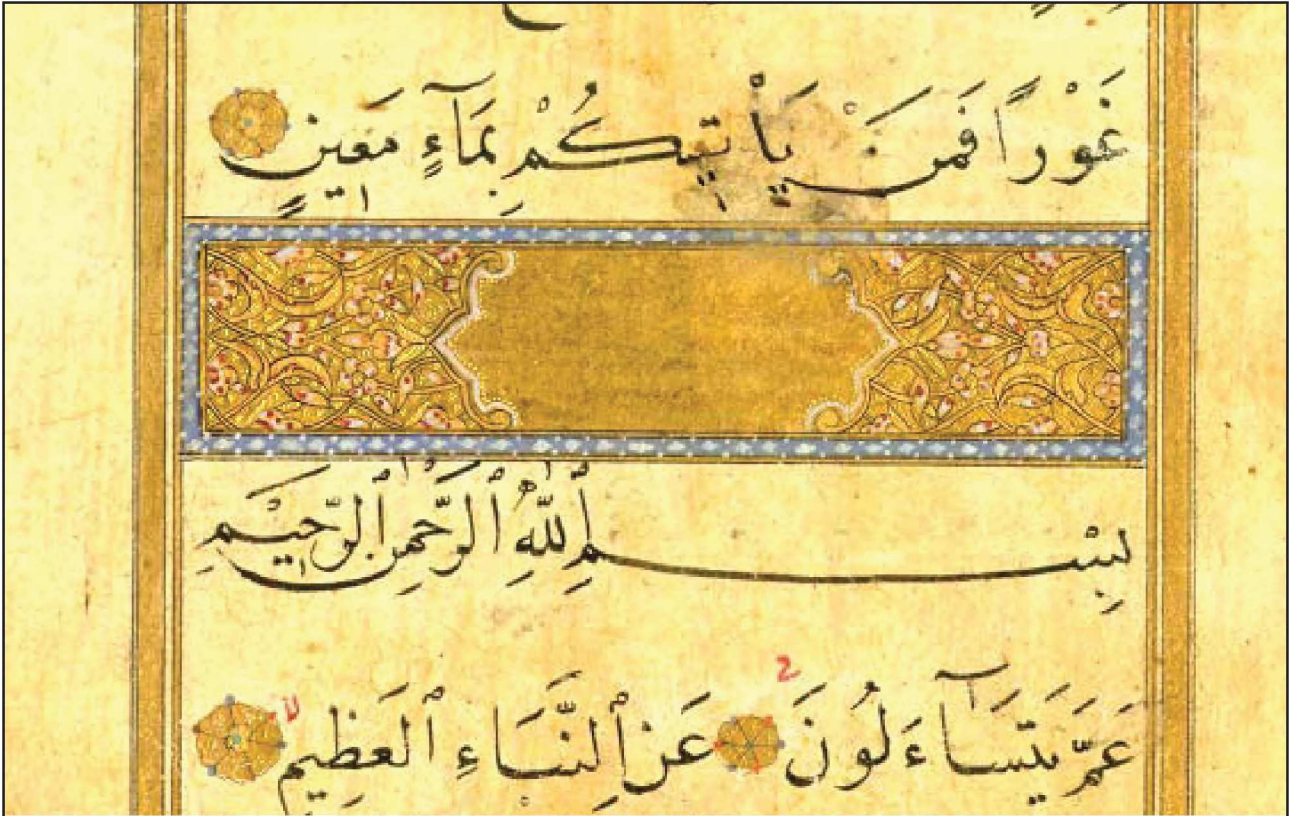 غَوْرًا فَمَنْ يَأْتِيكُمْ بِمَآءٍ مَعِينٍ
بِسْمِ ٱللَّهِ ٱلرَّحْمٰنِ ٱلرَّحِيْمِ
عَمَّ يَتَسَآءَلُونَ عَنِ ٱلنَّبَاءِ ٱلْعَظِيمِ